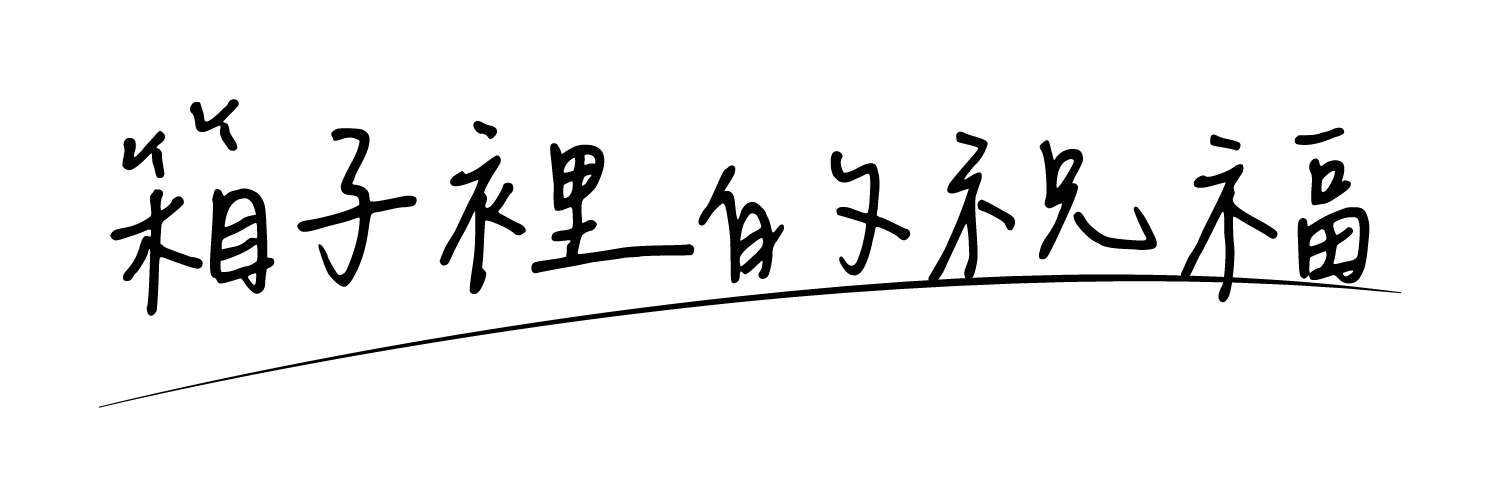 箱子裡的祝福